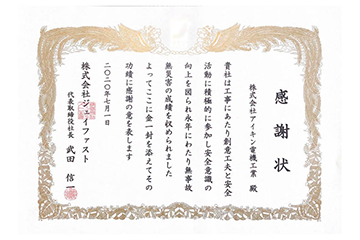 感謝状
株式会社アイキン電機工業 殿
貴社は工事にあたり創意工夫と安全
活動に積極的に参加し安全意識の
向上を図られ永年にわたり無事故
無災害の成績を収められました
よってここに金一封を添えてその
功績に感謝の意を表します
二〇二〇年七月一日
株式会社ジェイファスト
代表取締役社長 武田 信一